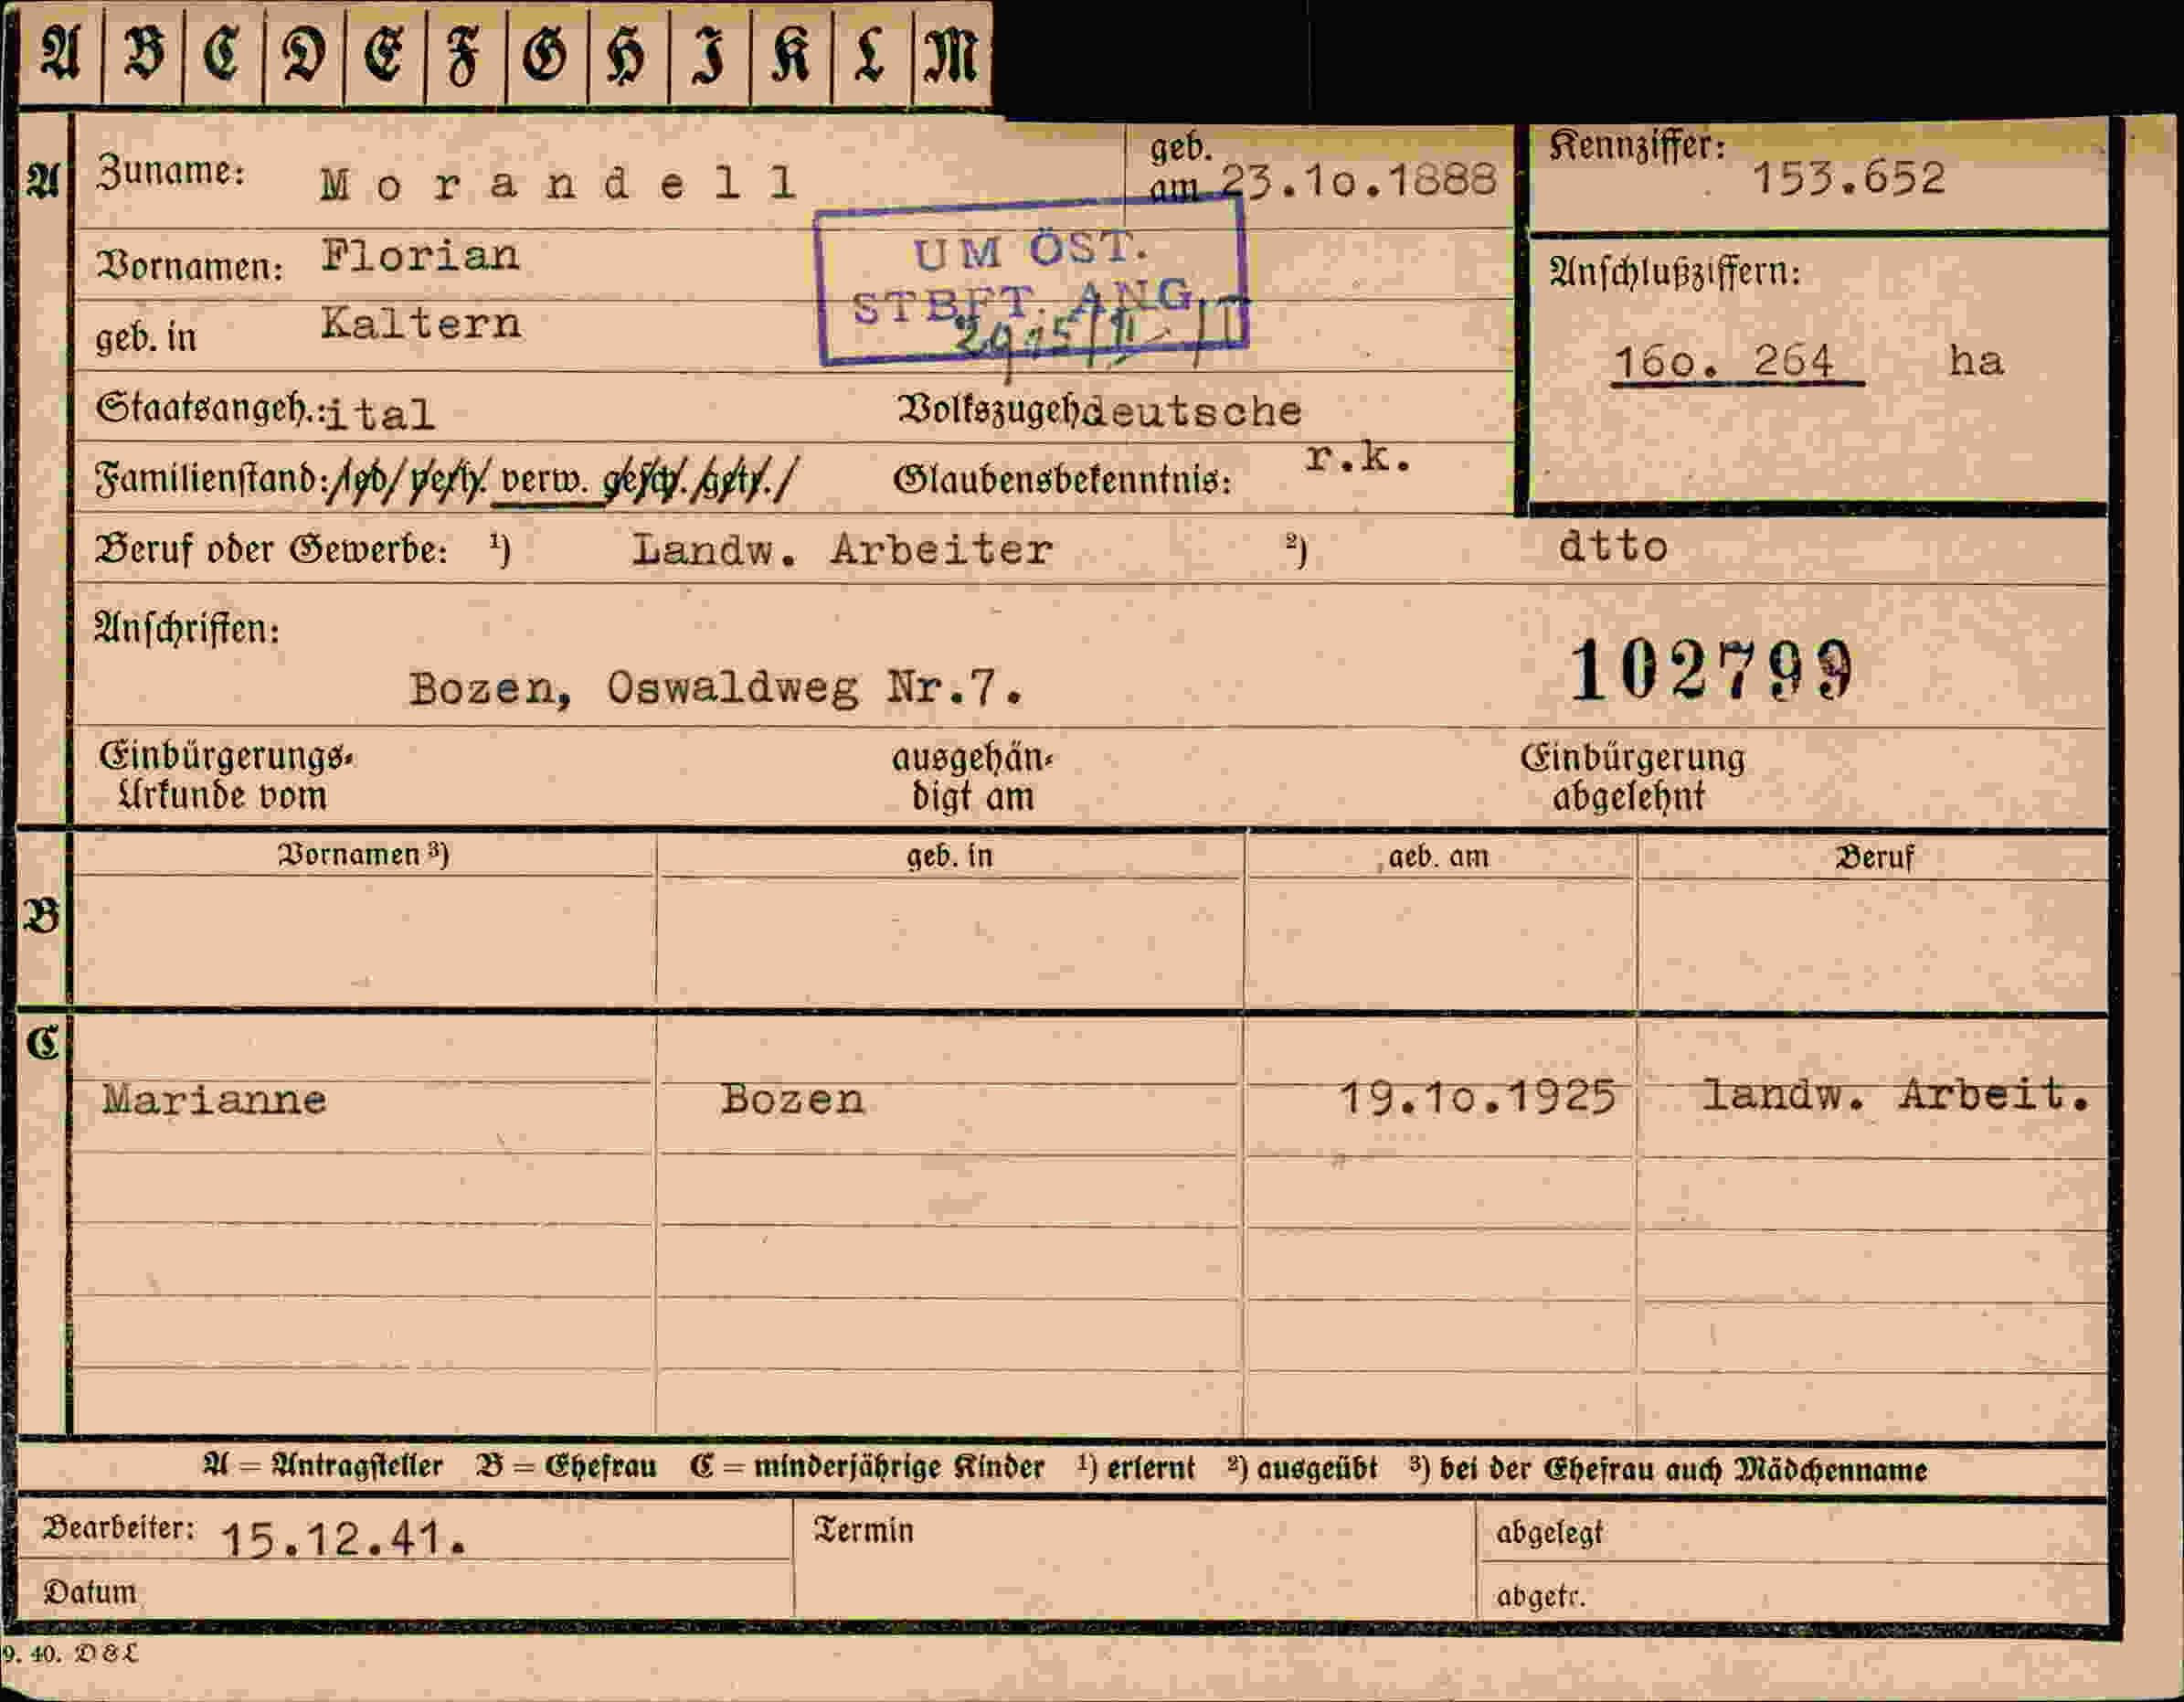 A B C D E F G H I K L M
A Zuname: Morandell geb. am 23.10.1888 Kennziffer: 153.652
Vornamen: Florian
UM ÖST.
STBFT. ANG.
geb. in Kaltern
Anschlußziffern:
160. 264 ha
Staatsangeh.: ital Volkszugeh deutsche
Familienstand: led. verh. verw. gesch. getr. Glaubensbekenntnis: r.k.
Beruf oder Gewerbe: ¹) Landw. Arbeiter ²) dtto
Anschriften:
Bozen, Oswaldweg Nr.7. 102799
Einbürgerungs-
Urkunde vom
ausgehän-
digt am
Einbürgerung
abgelehnt
Vornamen ³) geb. in geb. am Beruf
B
C
Marianne Bozen 19.10.1925 landw. Arbeit.
A = Antragsteller B = Ehefrau C = minderjährige Kinder ¹) erlernt ²) ausgeübt ³) bei der Ehefrau auch Mädchenname
Bearbeiter: 15.12.41. Termin abgelegt
Datum abgetr.
9. 40. D&L